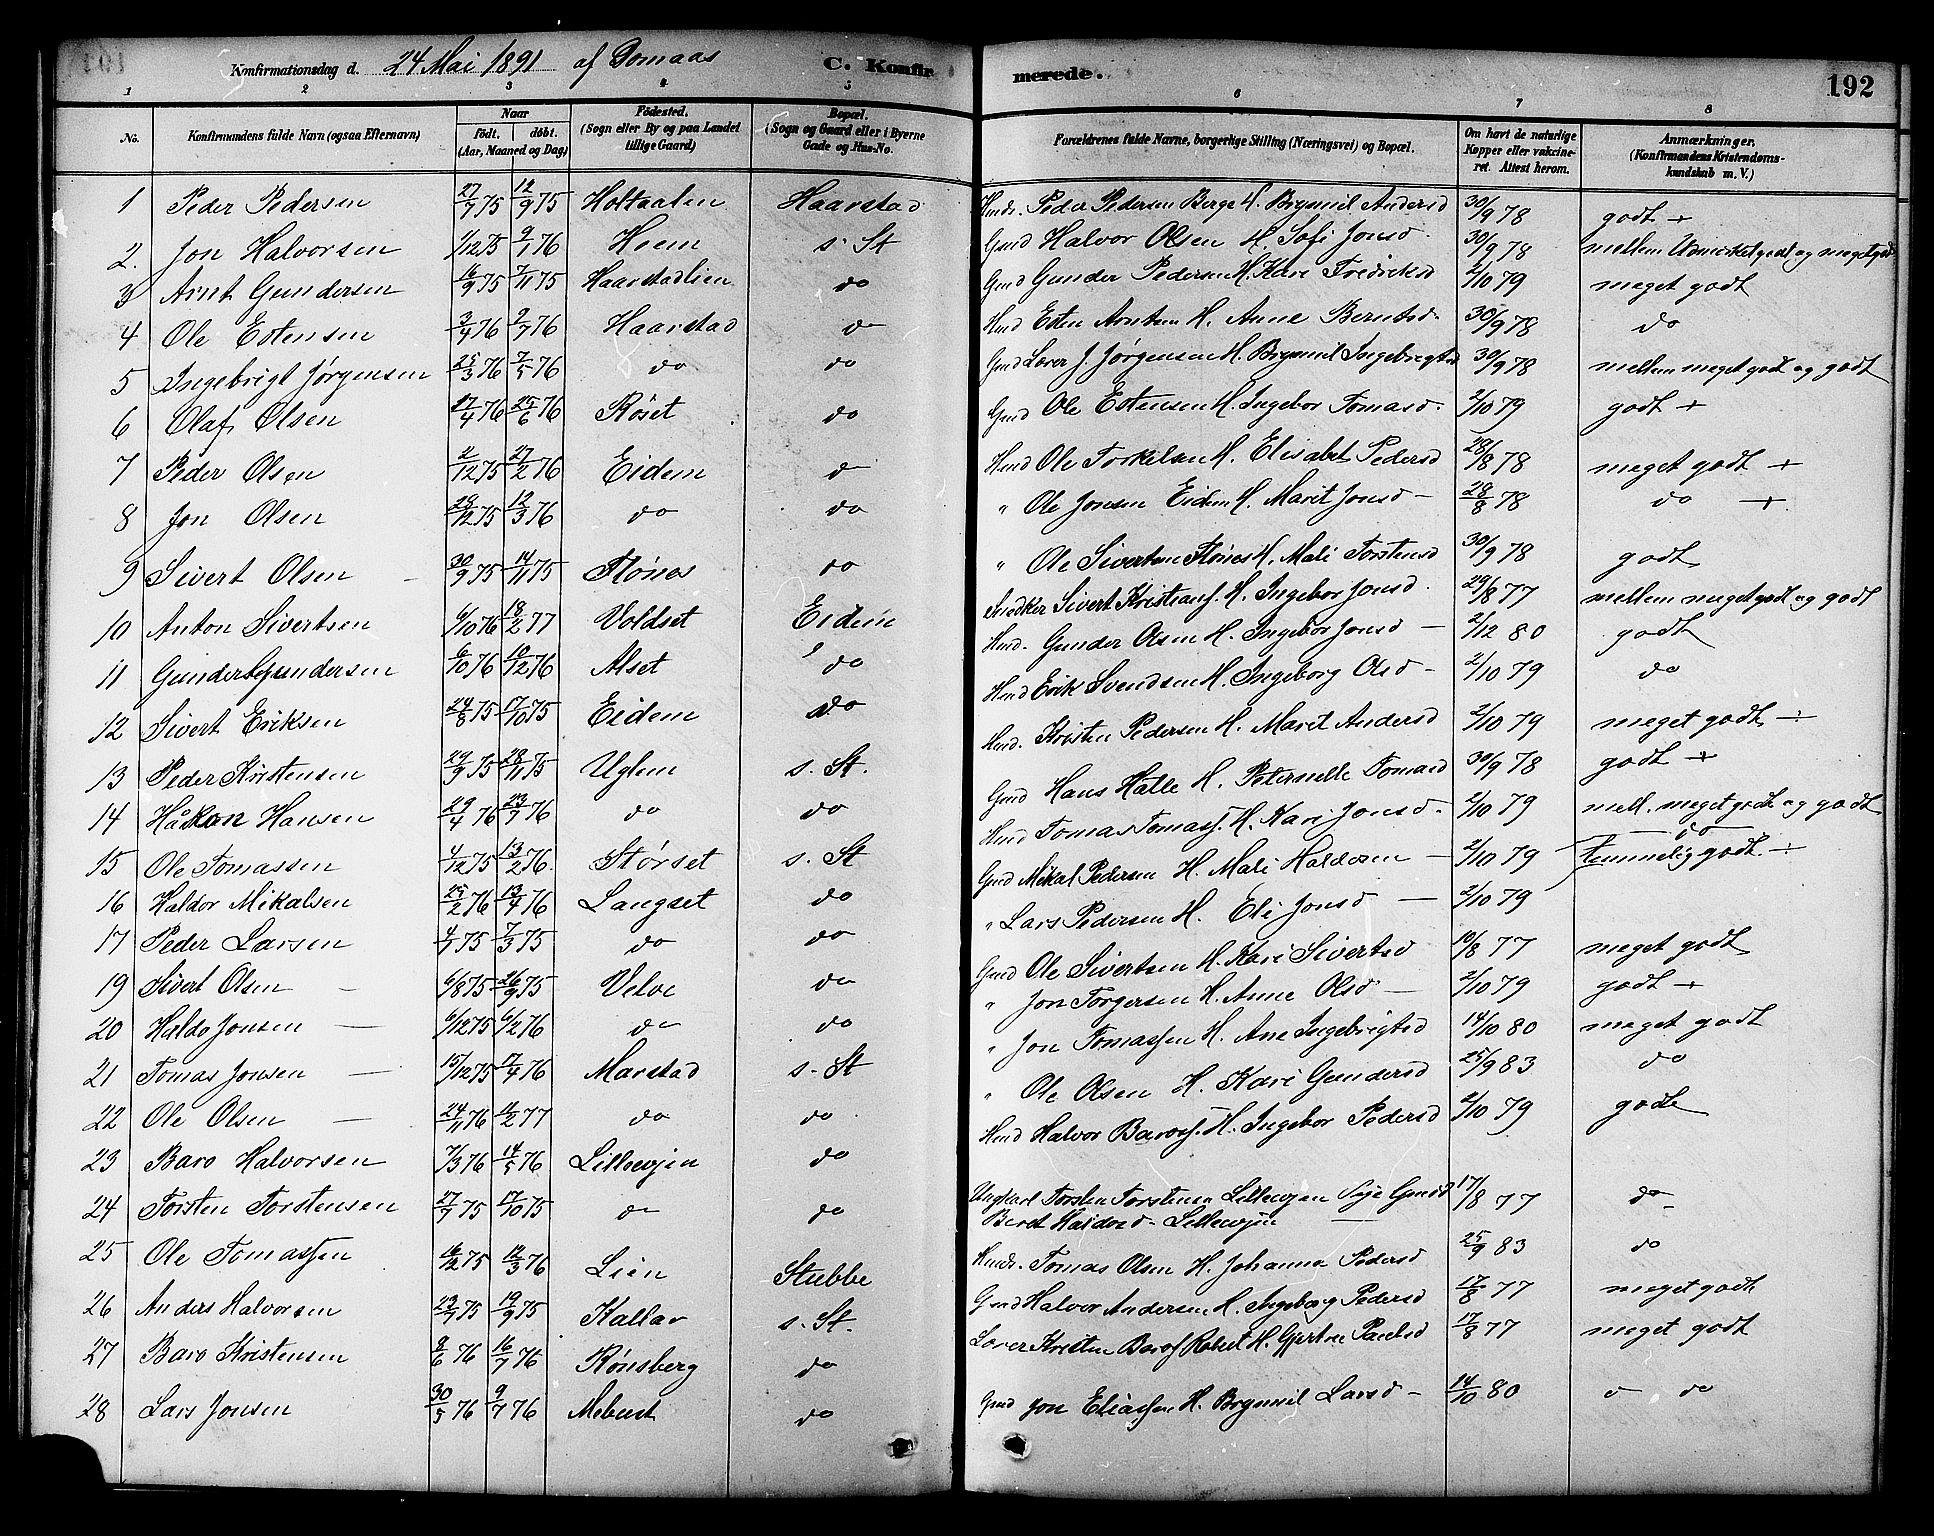 Konfirmationsdag d. 24 Mai 1891 af Domaas C. Konfir merede. 192
1 2 3 4 5 6 7 8
No. Konfirmandens fulde Navn (ogsaa Efternavn) Naar født. døbt. (Aar, Maaned og Dag) Fødested. (Sogn eller By og paa Landet tillige Gaard) Bopæl. (Sogn og Gaard eller i Byerne Gade og Hus-No. Forældrenes fulde Navne, borgerlige Stilling (Næringsvei) og Bopæl. Om havt de naturlige Kopper eller vakcineret. Attest herom. Anmærkninger. (Konfirmandens Kristendomskundskab m. V.)
1 Peder Pedersen 27/7 75 12/9 75 Holtaalen Haarstad Hmd. Peder Pedersen Berge H. Brynnil Andersd 30/9 78 godt +
2. Jon Halvorsen 1/12 75 9/1 76 Heem s. St Gmd Halvor Olsen H. Sofi Jonsd. 30/9 78 mellem Udmerket godt og meget godt
3 Arnt Gundersen 16/9 75 7/11 75 Haarstadlien do Gmd Gunder Pedersen H. Kari Fredriksd 2/10 79 meget godt
4 Ole Estensen 3/4 76 2/7 76 Haarstad do Hmd Esten Arntsen H. Anne Berntsd. 30/9 78 do
5 Ingebrigt Jørgensen 25/3 76 7/5 76 do do Gmd Lærer J. Jørgensen H. Brynnil Ingebrigtsd 30/9 78 mellem meget godt og godt
6 Olaf Olsen 17/4 76 25/6 76 Røset do Gmd Ole Estensen H. Ingebor Tomasd. 2/10 79 godt +
7 Peder Olsen 2/12 75 27/2 76 Eidem do Hmd Ole Torkelsen H. Elisabet Pedersd 28/8 78 meget godt +
8 Jon Olsen 28/12 75 12/3 76 do do " Ole Jonsen Eidem H. Marit Jonsd - 28/8 78 do +
9 Sivert Olsen 30/9 75 14/11 75 Flønes do " Ole Sivertsen Flønes H. Mali Torstensd 30/9 78 godt
10 Anton Sivertsen 6/10 76 18/2 77 Voldset Eidem Snedker Sivert Kristiansf. H. Ingebor Jonsd. 29/8 77 mellem meget godt og godt
11 Gunder Gundersen 6/10 76 10/12 76 Alset do Hmd. Gunder Olsen H. Ingebor Jonsd - 2/12 80 godt
12 Sivert Eriksen 24/8 75 17/10 75 Eidem do Hmd Erik Svendsen H. Ingeborg Olsd - 2/10 79 do
13 Peder Kristensen 29/9 75 28/11 75 Uglem s. St. Hmd. Kristen Pedersen H. Marit Andersd 2/10 79 meget godt ÷
14 Håkon Hansen 29/4 76 23/7 76 do do Gmd Hans Halle H. Peternelle Tomasd 30/9 78 godt +
15 Ole Tomassen 4/12 75 13/2 76 Størset s. St Hmd Tomas Tomasf. H. Kari Jonsd. 2/10 79 mell. meget godt og godt
16 Haldor Mikalsen 25/2 76 13/4 76 Langset do Gmd Mikal Pedersen H. Mali Haldorsen - 2/10 79 temmelig godt ÷
17 Peder Larsen 4/7 75 7/3 75 do do " Lars Pedersen H. Eli Jonsd - 2/10 79
19 Sivert Olsen - 6/8 75 26/9 75 Velve do Gmd Ole Sivertsen H. Kari Sivertsd 10/8 77 meget godt
20 Haldo Jonsen - 6/12 75 6/2 76 do do " Jon Torgersen H. Anne Olsd - 2/10 79 godt +
21 Tomas Jonsen - 15/12 75 17/4 76 Marstad s. St " Jon Tomassen H. Ane Ingebrigtsd 14/10 80 meget godt
22 Ole Olsen - 24/11 76 11/2 77 do do " Ole Olsen H. Kari Gundersd 25/9 83 do
23 Baro Halvorsen 7/3 76 14/5 76 Lillevjen do Hmd Halvor Barosf. H. Ingebor Pedersd 2/10 79 godt
24 Torsten Torstensen 27/7 75 17/10 75 do do Ungkarl Torsten Torstensen Lillevjen Pige Gmd
Beret Haldorsd. Lillevjen 17/8 77 do
25 Ole Tomassen 16/12 75 12/3 76 Lien Stubbe Hmd. Tomas Olsen H. Johanna Pedersd 25/9 83 do
26 Anders Halvorsen 23/7 75 19/9 75 Kallar s. St. Gmd Halvor Andersen H. Ingeborg Pedersd 17/8 77 meget godt
27 Baro Kristensen 8/6 76 16/7 76 Rønsberg do Lærer Kristen Barosf H. Gjertru Paulsd 17/8 77 meget godt
28 Lars Jonsen 30/5 76 9/7 76 Mebust do Gmd Jon Eliassen H. Brynnil Larsd - 14/10 80 do